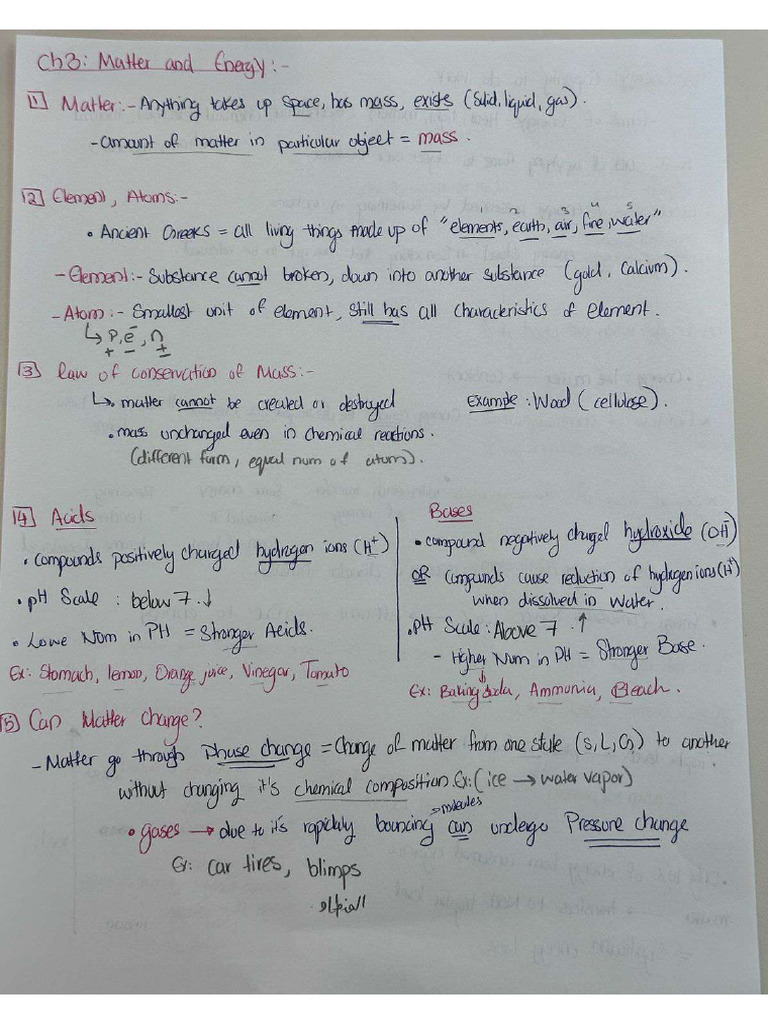 Ch3: Matter and Energy:-
1 Matter:- Anything takes up space, has mass, exists (Solid, liquid, gas).
- amount of matter in particular object = mass.
2 Element, Atoms:-
2 3 4 5
• Ancient Greeks = all living things made up of "elements, earth, air, fire, water"
- Element:- Substance cannot broken, down into another substance (gold, Calcium).
- Atom:- Smallest unit of element, still has all characteristics of element.
↳ P, e⁻, n
+ - ±
3 law of conservation of Mass:-
↳ matter cannot be created or destroyed Example: Wood (cellulose).
• mass unchanged even in chemical reactions.
(different form, equal num of atom).
4 Acids
• compounds positively charged hydrogen ions (H⁺)
• pH Scale: below 7. ↓
• Lowe Num in PH = Stronger Acids.
Ex: Stomach, lemon, Orange juice, Vinegar, Tomato
Bases
• compound negatively charged hydroxide (OH⁻)
OR Compounds cause reduction of hydrogen ions (H⁺)
when dissolved in water.
• PH Scale: Above 7. ↑
- Higher Num in PH = Stronger Base.
Ex: Baking Soda, Ammonia, Bleach.
5 Can Matter change?
- Matter go through Phase change = Change of matter from one state (S, L, G) to another
without changing it's chemical composition. Ex: (ice → water vapor)
→ molecules
• gases → due to it's rapidly bouncing can undergo Pressure change
Ex: car tires, blimps